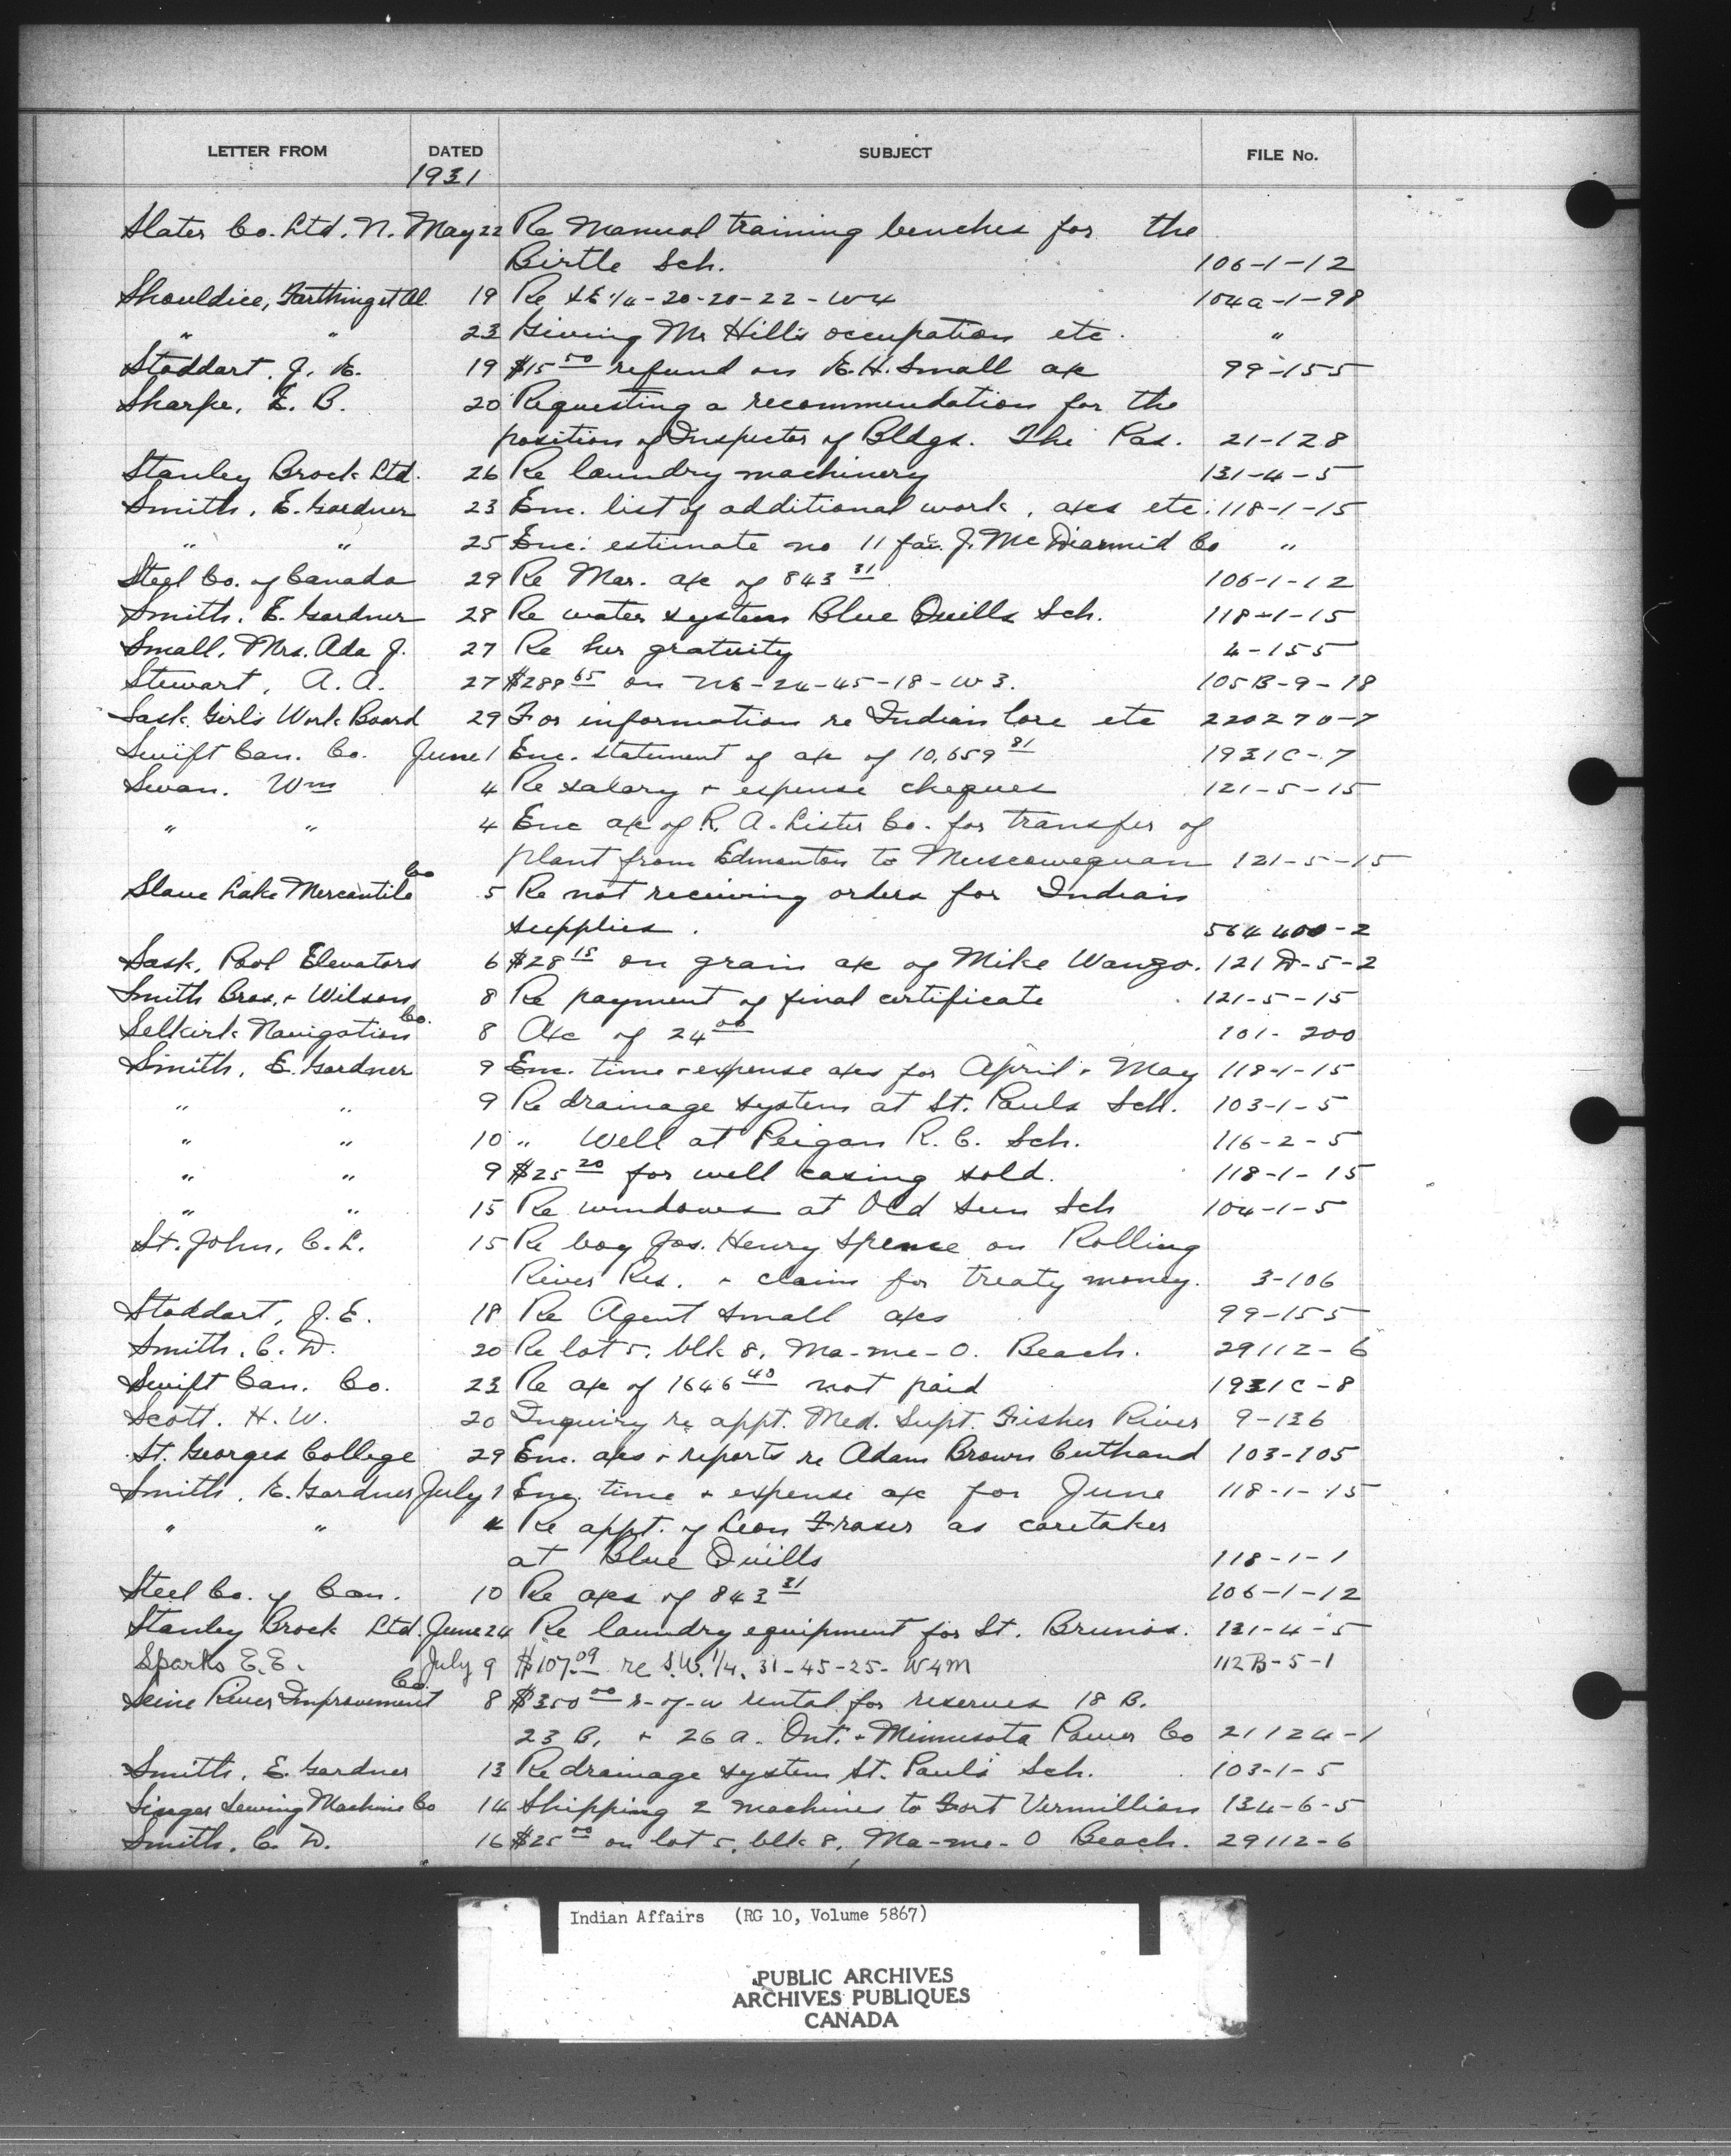 LETTER FROM DATED SUBJECT FILE No.
1931
Slater Co. Ltd. N. May 22 Re Manual training benches for the
Birtle Sch. 106-1-12
Shouldice, Farthing et Al. 19 Re SE 1/4-20-20-22-W4 104a-1-98
" " 23 Giving Mr Hill's occupation etc. "
Stoddart, J. E. 19 $15 00 refund on E.H. Small a/c 99-155
Sharpe, E. B. 20 Requesting a recommendation for the
position of Inspector of Bldgs. The Pas. 21-128
Stanley Brock Ltd. 26 Re laundry machinery 131-4-5
Smith, E. Gardner 23 Enc. list of additional work, a/cs etc. 118-1-15
" " 25 Enc. estimate no 11 fav. J. McDiarmid Co "
Steel Co. of Canada 29 Re Mar. a/c of 843 31 106-1-12
Smith, E. Gardner 28 Re water system Blue Quills Sch. 118-1-15
Small, Mrs. Ada J. 27 Re her gratuity 4-155
Stewart, A. A. 27 $289 65 on NE-24-45-18-W3. 105B-9-18
Sask. Girls Work Board 29 For information re Indian lore etc 220270-7
Swift Can. Co. June 1 Enc. statement of a/c of 10,659 81 1931C-7
Swan, Wm 4 Re salary + expense cheques 121-5-15
" " 4 Enc a/c of R. A. Lister Co. for transfer of
plant from Edmonton to Muscowequan 121-5-15
Slave Lake Mercantile Co 5 Re not receiving orders for Indian
supplies. 564400-2
Sask. Pool Elevators 6 $28 15 on grain a/c of Mike Wanzo. 121D-5-2
Smith Bros. + Wilson 8 Re payment of final certificate 121-5-15
Selkirk Navigation Co. 8 A/c of 24 00 101-200
Smith, E. Gardner 9 Enc. time + expense a/cs for April + May 118-1-15
" " 9 Re drainage system at St. Pauls Sch. 103-1-5
" " 10 " Well at Peigan R. C. Sch. 116-2-5
" " 9 $25 20 for well casing sold. 118-1-15
" " 15 Re windows at Old Sun Sch 104-1-5
St. John, C. L. 15 Re boy Jas. Henry Spence on Rolling
River Res. + claim for treaty money. 3-106
Stoddart, J. E. 18 Re Agent Small a/cs 99-155
Smith, C. D. 20 Re lot 5, blk 8, Ma-me-O. Beach. 29112-6
Swift Can. Co. 23 Re a/c of 1646 40 not paid 1931C-8
Scott, H. W. 20 Inquiry re appt. Med. Supt. Fisher River 9-136
St. Georges College 29 Enc. a/cs + reports re Adam Brown Cuthand 103-105
Smith, E. Gardner July 1 Enc. time + expense a/c for June 118-1-15
" " 4 Re appt. of Leon Fraser as caretaker
at Blue Quills 118-1-1
Steel Co. of Can. 10 Re a/cs of 843 31 106-1-12
Stanley Brock Ltd. June 24 Re laundry equipment for St. Brunos. 131-4-5
Sparks E.E. July 9 $107.09 re S.W. 1/4, 31-45-25-W4M 112B-5-1
Seine River Improvement Co. 8 $350 00 r-of-w rental for reserves 18 B.
23 B, + 26 A. Ont. + Minnesota Power Co 21124-1
Smith, E. Gardner 13 Re drainage system St. Paul's Sch. 103-1-5
Singer Sewing Machine Co 14 Shipping 2 machines to Fort Vermillion 134-6-5
Smith, C. D. 16 $25 00 on lot 5, blk 8, Ma-me-O Beach. 29112-6
Indian Affairs (RG 10, Volume 5867)
PUBLIC ARCHIVES
ARCHIVES PUBLIQUES
CANADA